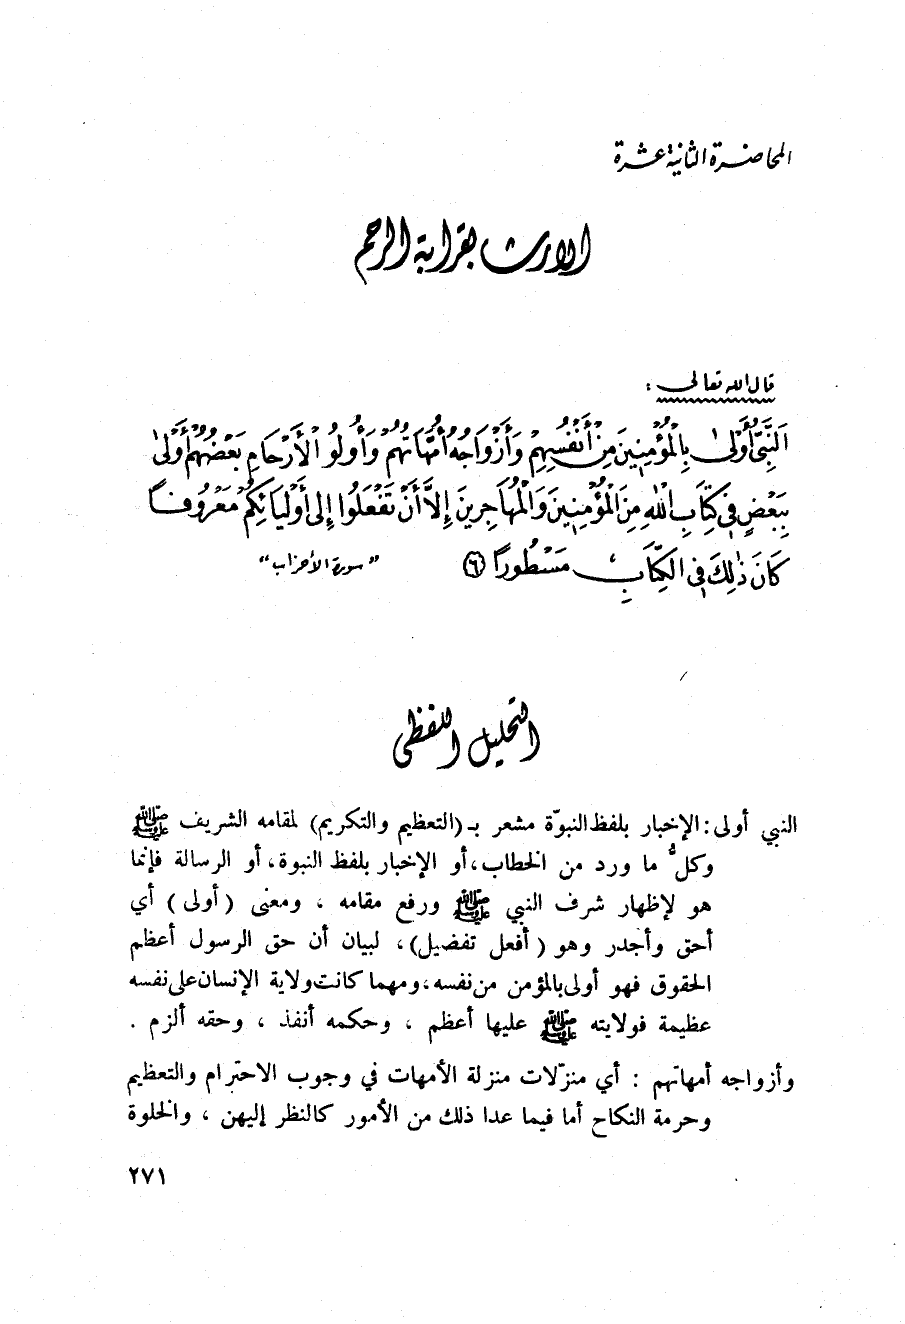 المحاضرة الثانية عشرة
الارث بقرابة الرحم
قال الله تعالى :
اَلنَّبِيُّ أَوْلَىٰ بِالْمُؤْمِنِينَ مِنْ أَنْفُسِهِمْ وَأَزْوَاجُهُ أُمَّهَاتُهُمْ وَأُولُو الْأَرْحَامِ بَعْضُهُمْ أَوْلَىٰ
بِبَعْضٍ فِي كِتَابِ اللَّهِ مِنَ الْمُؤْمِنِينَ وَالْمُهَاجِرِينَ إِلَّا أَنْ تَفْعَلُوا إِلَى أَوْلِيَائِكُمْ مَعْرُوفًا
كَانَ ذَٰلِكَ فِي الْكِتَابِ مَسْطُورًا ﴿٦﴾ « سورة الأحزاب »
التحليل اللفظي
النبي أولى : الإخبار بلفظ النبوّة مشعر بـ (التعظيم والتكريم) لمقامه الشريف ﷺ
وكلُّ ما ورد من الخطاب، أو الإخبار بلفظ النبوة، أو الرسالة فإنما
هو لإظهار شرف النبي ﷺ ورفع مقامه ، ومعنى ( أولى ) أي
أحق وأجدر وهو ( أفعل تفضيل)، لبيان أن حق الرسول أعظم
الحقوق فهو أولى بالمؤمن من نفسه، ومهما كانت ولاية الإنسان على نفسه
عظيمة فولايته ﷺ عليها أعظم ، وحكمه أنفذ ، وحقه ألزم .
وأزواجه أمهاتهم : أي منزّلات منزلة الأمهات في وجوب الاحترام والتعظيم
وحرمة النكاح أما فيما عدا ذلك من الأمور كالنظر إليهن ، والخلوة
٢٧١